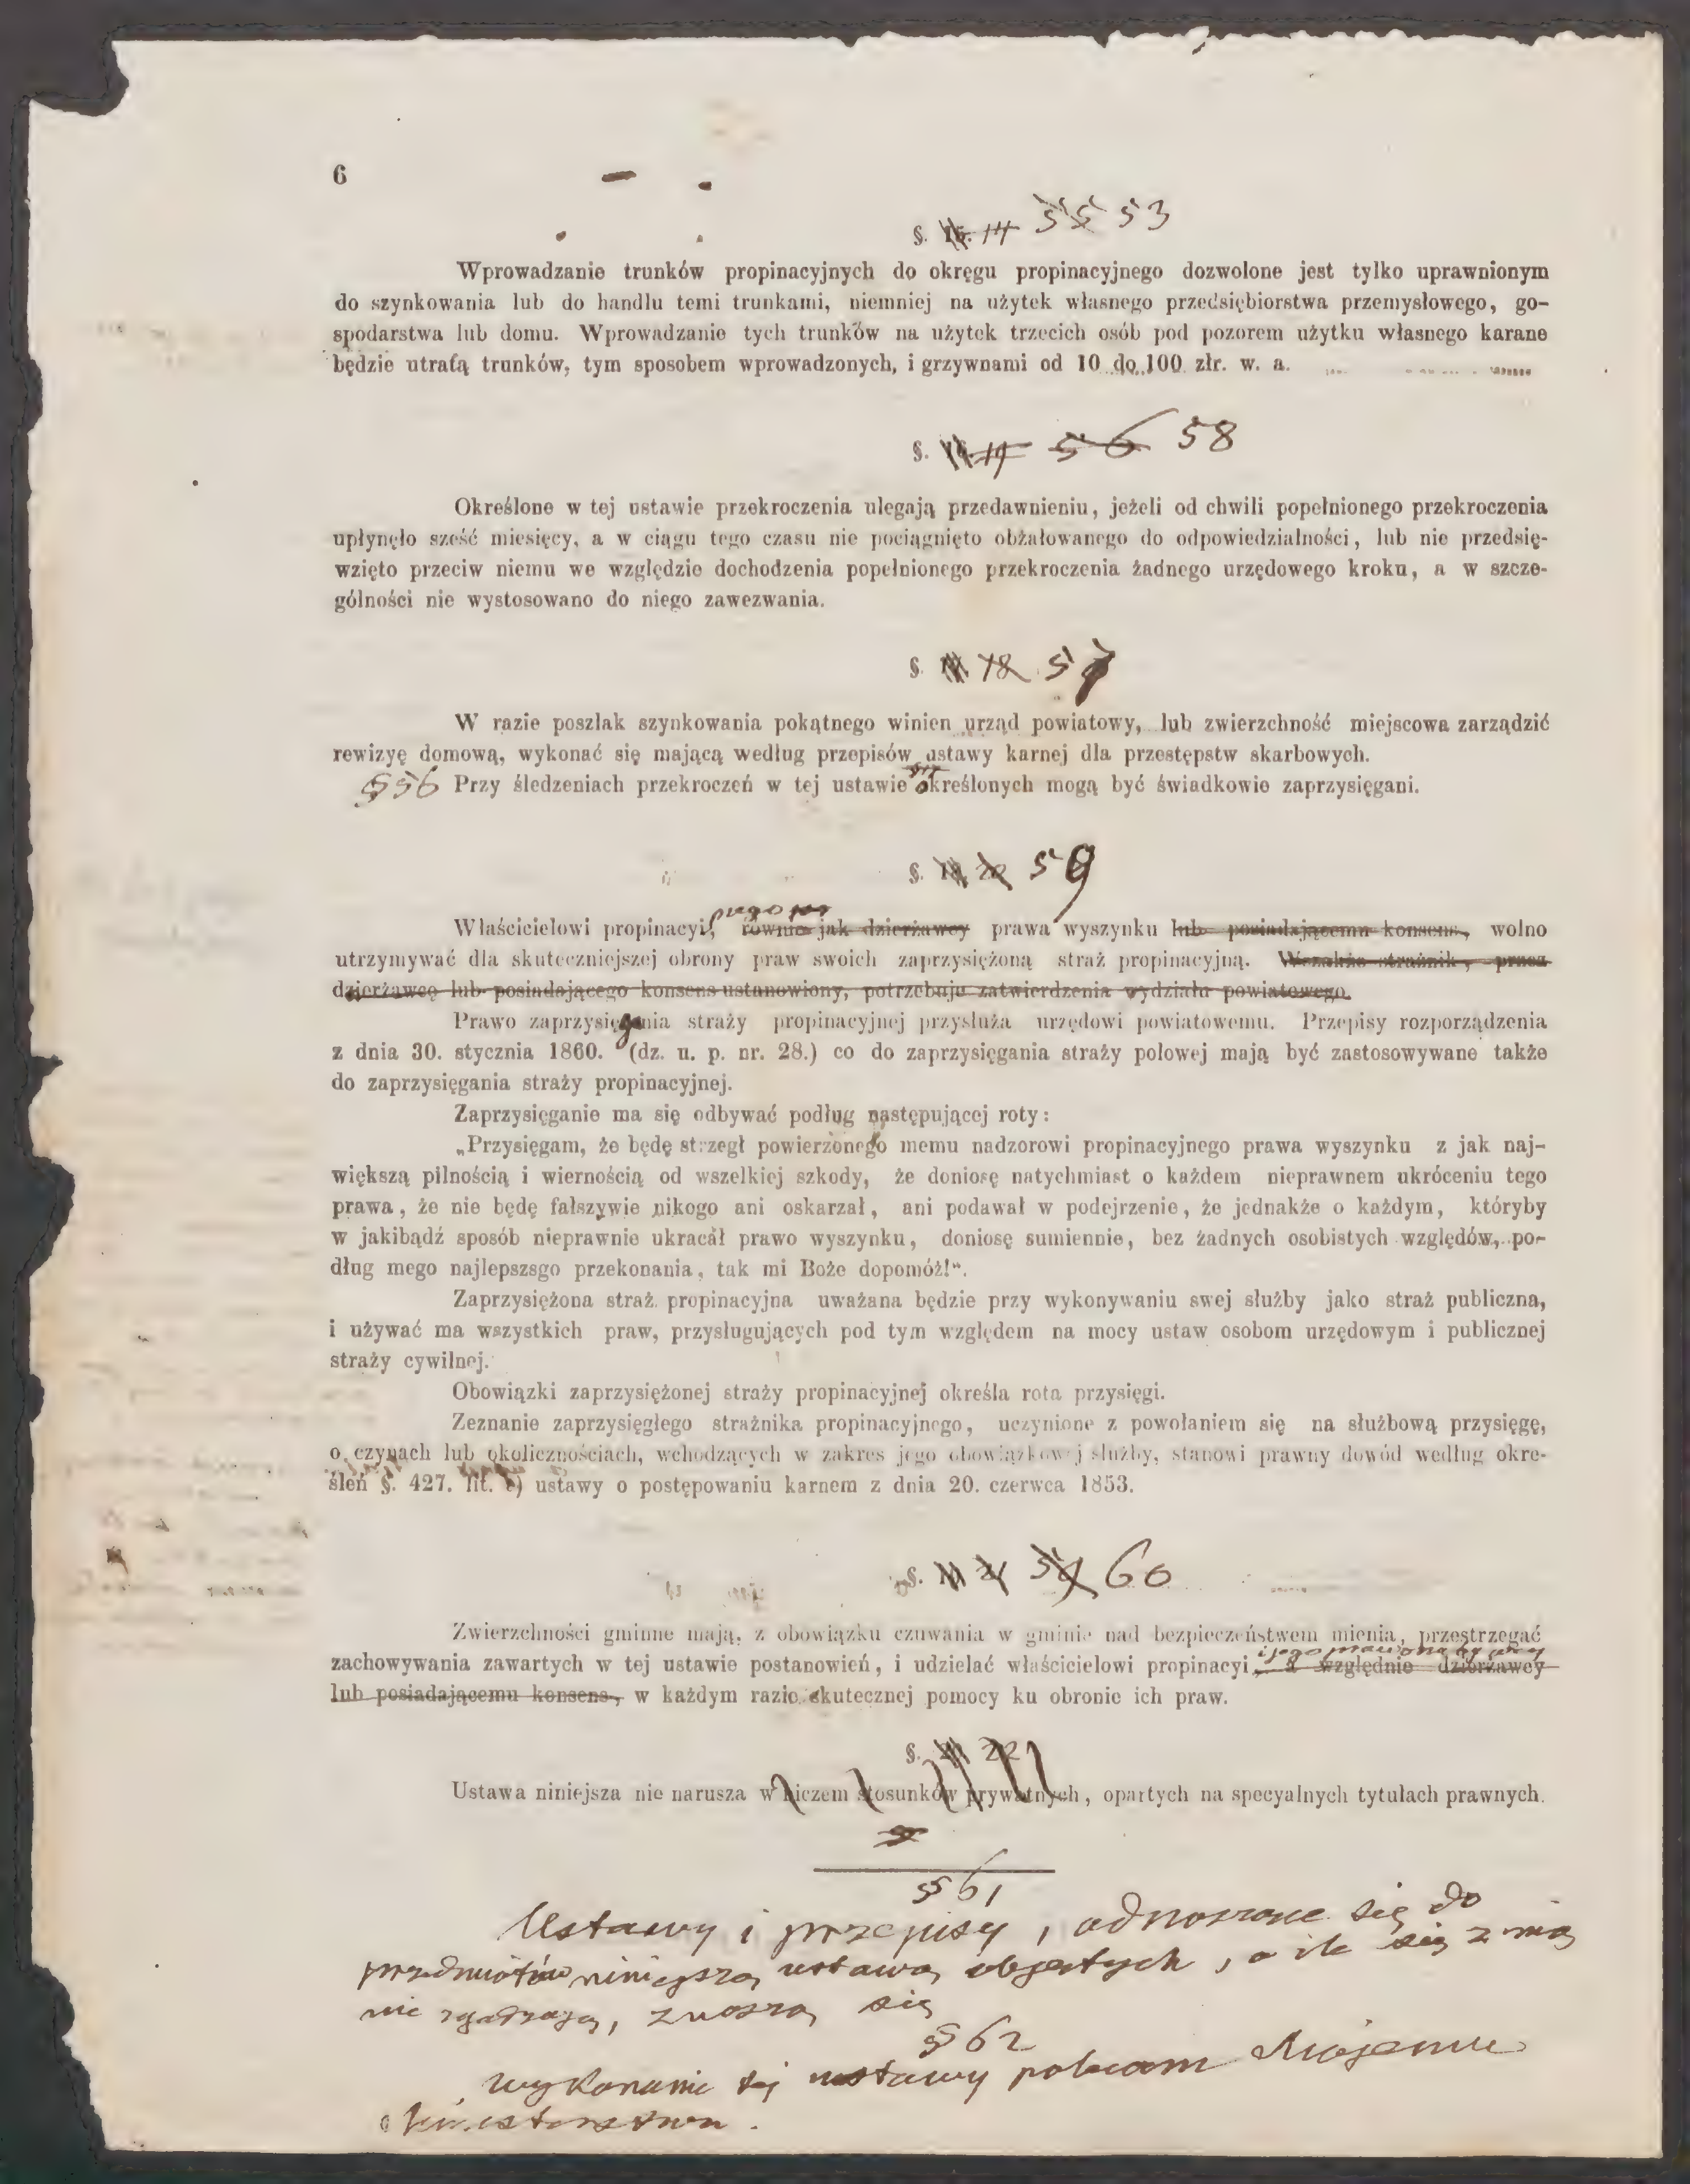 6
§. 15. 14 55 53
Wprowadzanie trunków propinacyjnych do okręgu propinacyjnego dozwolone jest tylko uprawnionym
do szynkowania lub do handlu temi trunkami, niemniej na użytek własnego przedsiębiorstwa przemysłowego, go-
spodarstwa lub domu. Wprowadzanie tych trunków na użytek trzecich osób pod pozorem użytku własnego karane
będzie utratą trunków, tym sposobem wprowadzonych, i grzywnami od 10 do 100 złr. w. a.
§. 56 58
Określone w tej ustawie przekroczenia ulegają przedawnieniu, jeżeli od chwili popełnionego przekroczenia
upłynęło sześć miesięcy, a w ciągu tego czasu nie pociągnięto obżałowanego do odpowiedzialności, lub nie przedsię-
wzięto przeciw niemu we względzie dochodzenia popełnionego przekroczenia żadnego urzędowego kroku, a w szcze-
gólności nie wystosowano do niego zawezwania.
§. 18 57
W razie poszlak szynkowania pokątnego winien urząd powiatowy, lub zwierzchność miejscowa zarządzić
rewizyę domową, wykonać się mającą według przepisów ustawy karnej dla przestępstw skarbowych.
§ 56 Przy śledzeniach przekroczeń w tej ustawie określonych mogą być świadkowie zaprzysięgani.
§. 18. 20 59
Właścicielowi propinacyi, równie jak dzierżawcy prawa wyszynku lub posiadającemu konsens, wolno
utrzymywać dla skuteczniejszej obrony praw swoich zaprzysiężoną straż propinacyjną. Wszakże strażnik, przez
dzierżawcę lub posiadającego konsens ustanowiony, potrzebuje zatwierdzenia wydziału powiatowego.
Prawo zaprzysięgania straży propinacyjnej przysłuża urzędowi powiatowemu. Przepisy rozporządzenia
z dnia 30. stycznia 1860. (dz. u. p. nr. 28.) co do zaprzysięgania straży polowej mają być zastosowywane także
do zaprzysięgania straży propinacyjnej.
Zaprzysięganie ma się odbywać podług następującej roty:
„Przysięgam, że będę strzegł powierzonego memu nadzorowi propinacyjnego prawa wyszynku z jak naj-
większą pilnością i wiernością od wszelkiej szkody, że doniosę natychmiast o każdem nieprawnem ukróceniu tego
prawa, że nie będę fałszywie nikogo ani oskarzał, ani podawał w podejrzenie, że jednakże o każdym, któryby
w jakibądź sposób nieprawnie ukracał prawo wyszynku, doniosę sumiennie, bez żadnych osobistych względów, po-
dług mego najlepszsgo przekonania, tak mi Boże dopomóż!“.
Zaprzysiężona straż propinacyjna uważana będzie przy wykonywaniu swej służby jako straż publiczna,
i używać ma wszystkich praw, przysługujących pod tym względem na mocy ustaw osobom urzędowym i publicznej
straży cywilnej.
Obowiązki zaprzysiężonej straży propinacyjnej określa rota przysięgi.
Zeznanie zaprzysięgłego strażnika propinacyjnego, uczynione z powołaniem się na służbową przysięgę,
o czynach lub okolicznościach, wchodzących w zakres jego obowiązkowej służby, stanowi prawny dowód według okre-
śleń §. 427. lit. c) ustawy o postępowaniu karnem z dnia 20. czerwca 1853.
§. 21 60
Zwierzchności gminne mają, z obowiązku czuwania w gminie nad bezpieczeństwem mienia, przestrzegać
zachowywania zawartych w tej ustawie postanowień, i udzielać właścicielowi propinacyi, a względnie dzierżawcy
lub posiadającemu konsens, w każdym razie skutecznej pomocy ku obronie ich praw.
§. 20 22
Ustawa niniejsza nie narusza w niczem stosunków prywatnych, opartych na specyalnych tytułach prawnych.
§ 61
Ustawy i przepisy, odnoszone się do
przedmiotów niniejszą ustawą objętych, o ile się z nią
nie zgadzają, znoszą się
§ 62
Wykonanie tej ustawy polecam Mojemu
Ministerstwu.